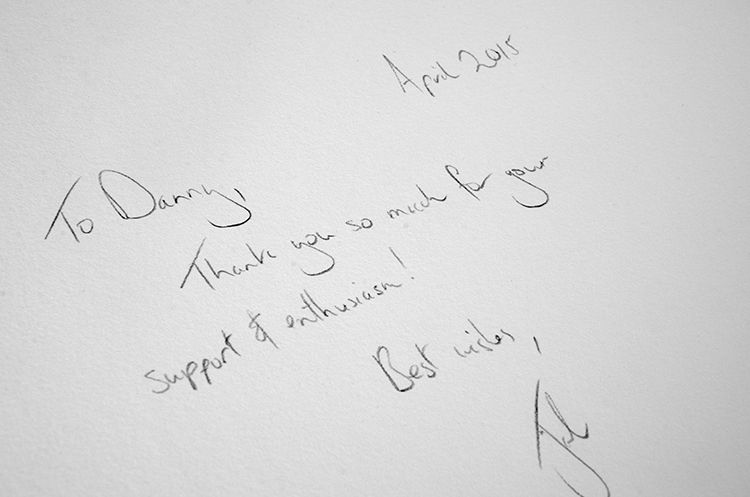 April 2015
To Danny,
Thank you so much for your
support & enthusiasm!
Best wishes,